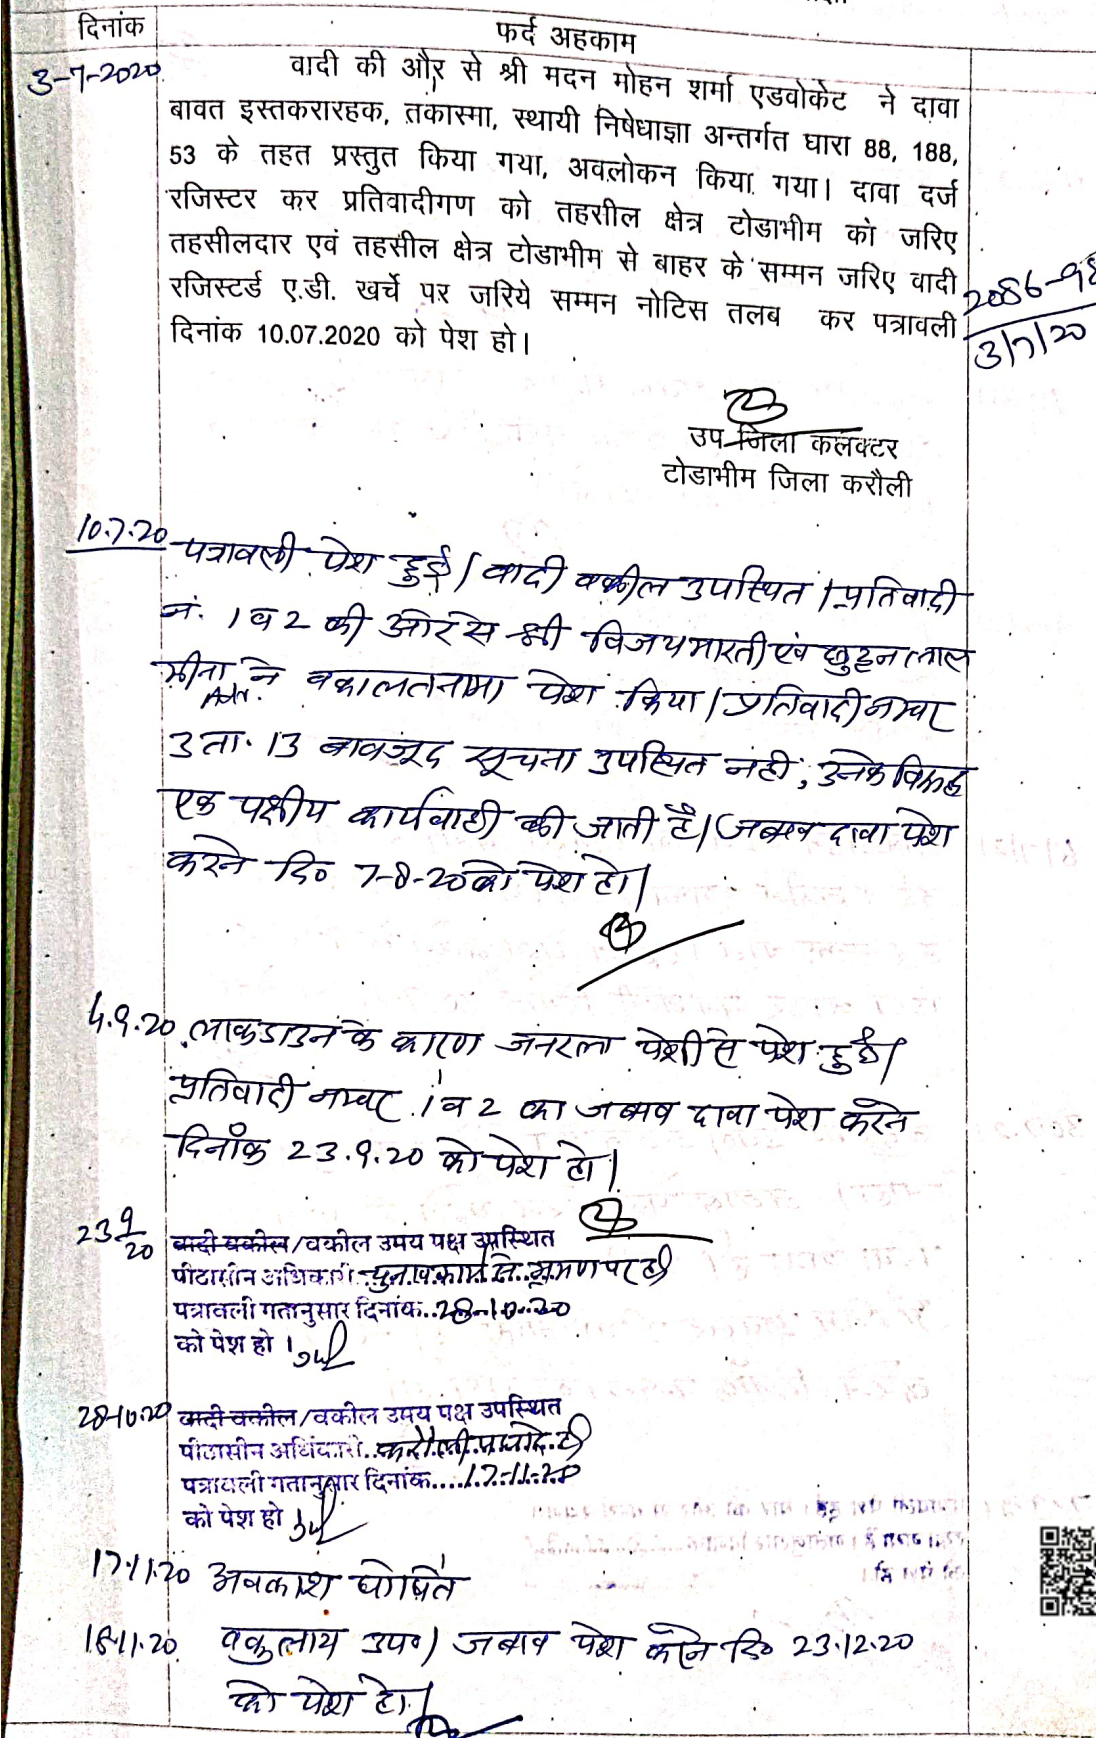 दिनांक
फर्द अहकाम
3-7-2020
वादी की और से श्री मदन मोहन शर्मा एडवोकेट ने दावा
बावत इस्तकरारहक, तकास्मा, स्थायी निषेधाज्ञा अन्तर्गत घारा 88, 188,
53 के तहत प्रस्तुत किया गया, अवलोकन किया गया। दावा दर्ज
रजिस्टर कर प्रतिवादीगण को तहसील क्षेत्र टोडाभीम को जरिए
तहसीलदार एवं तहसील क्षेत्र टोडाभीम से बाहर के सम्मन जरिए वादी
रजिस्टर्ड ए.डी. खर्चे पर जरिये सम्मन नोटिस तलब कर पत्रावली
दिनांक 10.07.2020 को पेश हो।
2086-98
3/7/20
उप जिला कलक्टर
टोडाभीम जिला करौली
10.7.20 पत्रावली पेश हुई। वादी वकील उपस्थित। प्रतिवादी
नं. 1 व 2 की ओर से श्री विजय भारती एवं छुट्टन लाल
मीना Adv. ने वकालतनामा पेश किया। प्रतिवादी नम्बर
3 ता. 13 बावजूद सूचना उपस्थित नही, उनके विरूद्ध
एक पक्षीय कार्यवाही की जाती है। जबाव दावा पेश
करने दि० 7-8-20 को पेश हो।
4.9.20 लाकडाउन के कारण जनरल पेशी से पेश हुई।
प्रतिवादी नम्बर 1 व 2 का जबाव दावा पेश करने
दिनाँक 23.9.20 को पेश हो।
23 9/20 वादी वकील/वकील उमय पक्ष उपस्थित
पीठासीन अधिकारी चुनाव कार्य से भ्रमण पर है
पत्रावली गतानुसार दिनांक..28-10-20
को पेश हो।
28-10-20 वादी वकील/वकील उमय पक्ष उपस्थित
पीठासीन अधिकारी..करौली
पत्रावली गतानुसार दिनांक....17.11.20
को पेश हो
17.11.20 अवकाश घोषित
18.11.20 वकुलाय उप०। जबाव पेश करने दि० 23.12.20
को पेश हो।